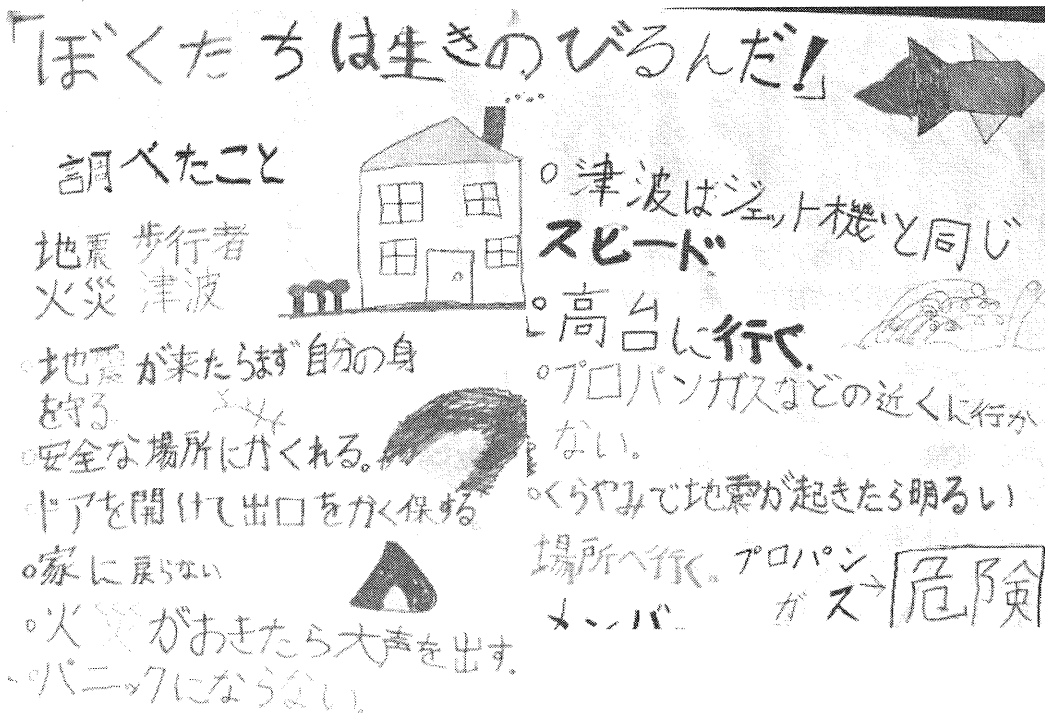 「ぼくたちは生きのびるんだ!」
調べたこと
地震 歩行者
火災 津波
○地震が来たらまず自分の身
を守る
○安全な場所にかくれる。
○ドアを開けて出口をかく保する
○家に戻らない
○火災がおきたら大声を出す。
○パニックにならない。
○津波はジェット機と同じ
スピード
○高台に行く。
○プロパンガスなどの近くに行か
ない。
○くらやみで地震が起きたら明るい
場所へ行く。
プロパン
ガス→危険
メンバー